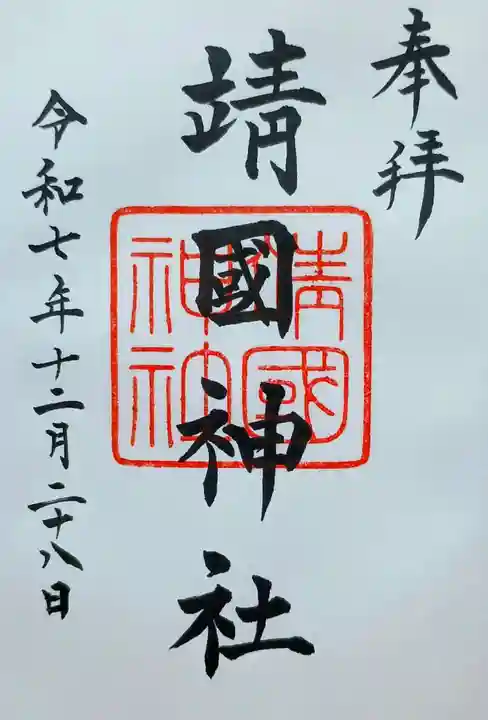 奉拝
靖國神社
靖國神社
令和七年十二月二十八日